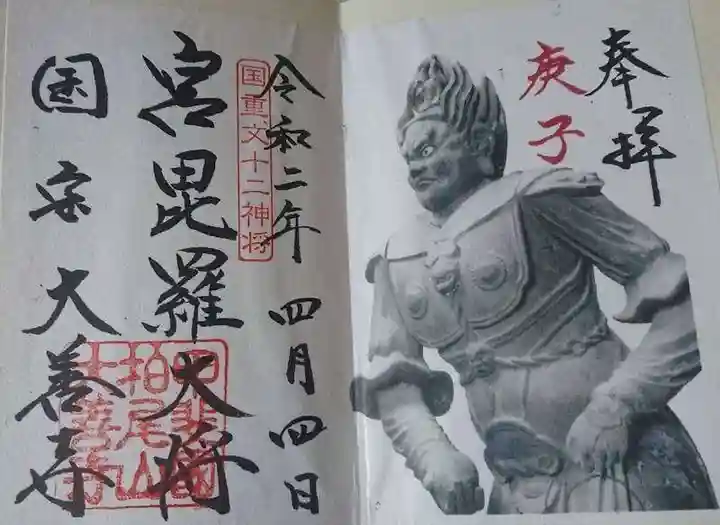 奉拝
庚子
令和二年 四月四日
国重文十二神将
宮毘羅大将
甲斐國
柏尾山
大善寺
国宝大善寺